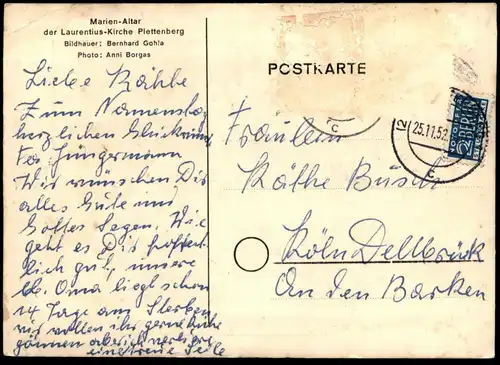 Marien-Altar
der Laurentius-Kirche Plettenberg
Bildhauer: Bernhard Gohla
Photo: Anni Borgas
POSTKARTE
Liebe Käthe
Zum Namenstag
herzlichen Glückwunsch
Fa Jüngermann
Wir wünschen Dir
alles Gute und
Gottes Segen. Wie
geht es Dir hoffent
lich gut, unsere
lb. Oma liegt schon
14 Tage am Sterben
wir wollen ihr gerne Ruhe
gönnen aber ich verliere
eine treue Seele
25.11.52
c
c
NOTOPFER
2 BERLIN
STEUERMARKE
Fräulein
Käthe
Köln Dellbrück
An den Barken